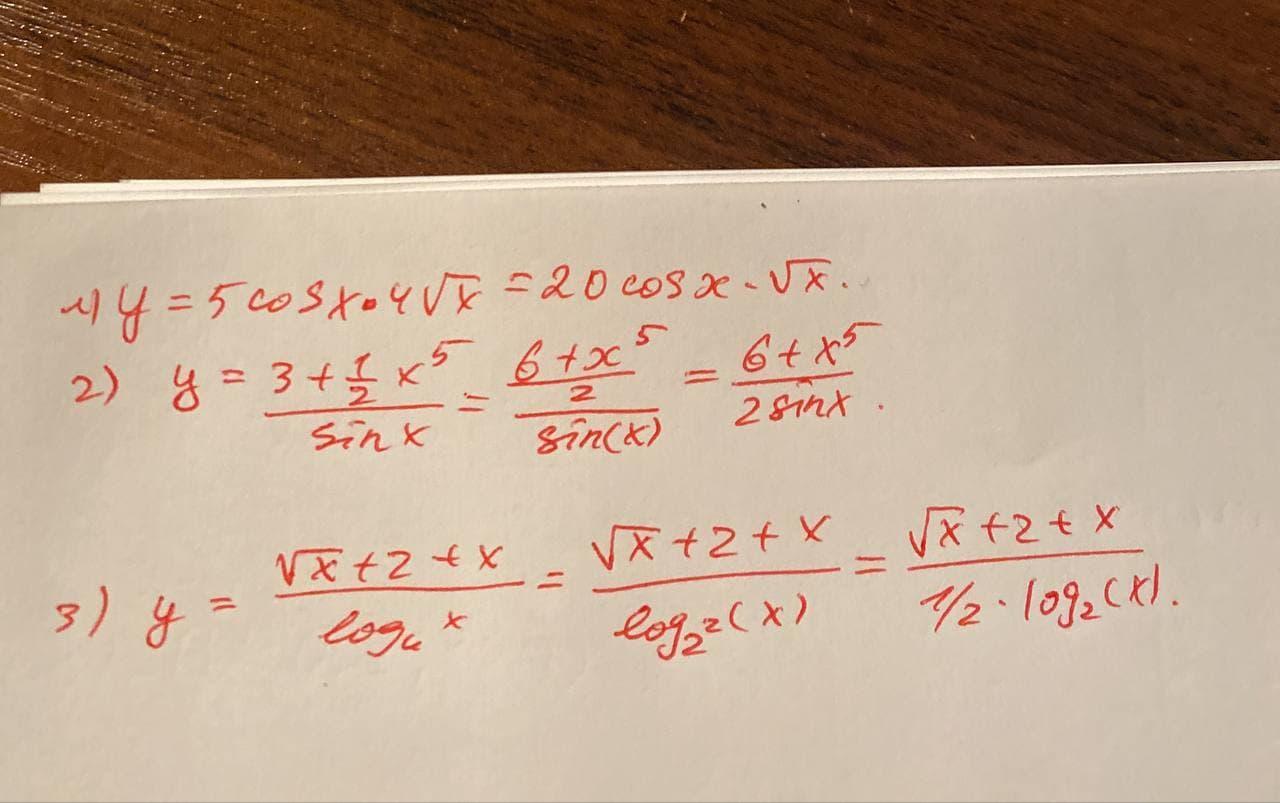 1) y = 5 cos x · 4√x = 20 cos x · √x.
2) y = (3 + 1/2 x^5)/(sin x) = ((6 + x^5)/2)/(sin(x)) = (6 + x^5)/(2 sin x).
3) y = (√x + 2 + x)/(log₄ x) = (√x + 2 + x)/(log_{2^2}(x)) = (√x + 2 + x)/(1/2 · log₂(x)).